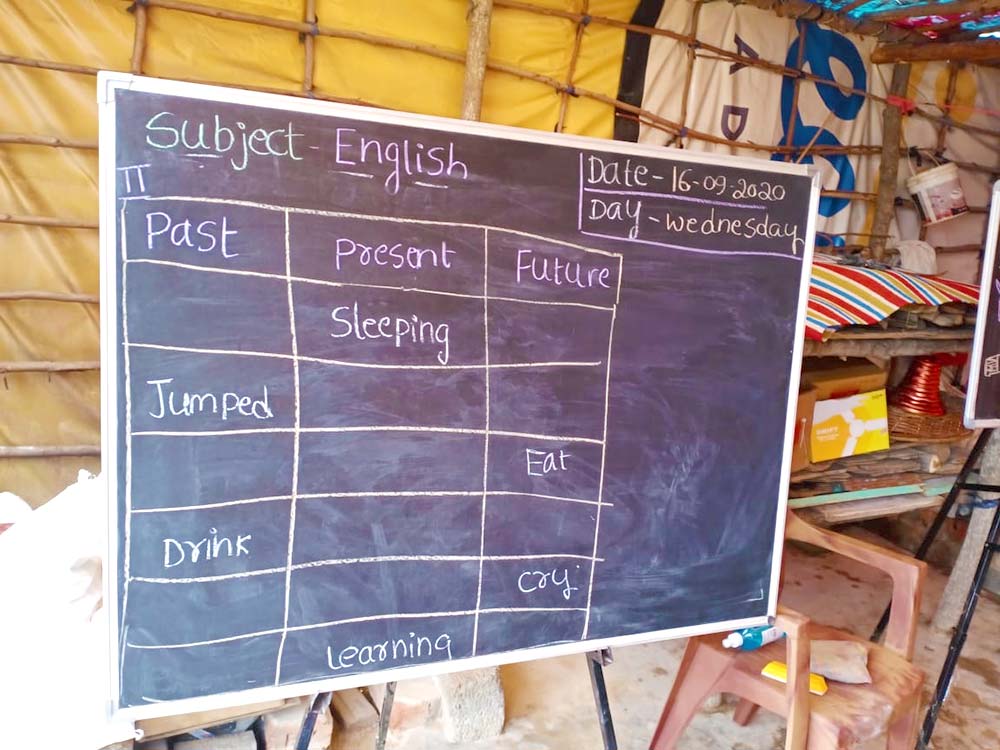 Subject - English
Date - 16-09-2020
Day - wednesday
II
Past Present Future
Sleeping
Jumped
Eat
Drink
cry
Learning
A D